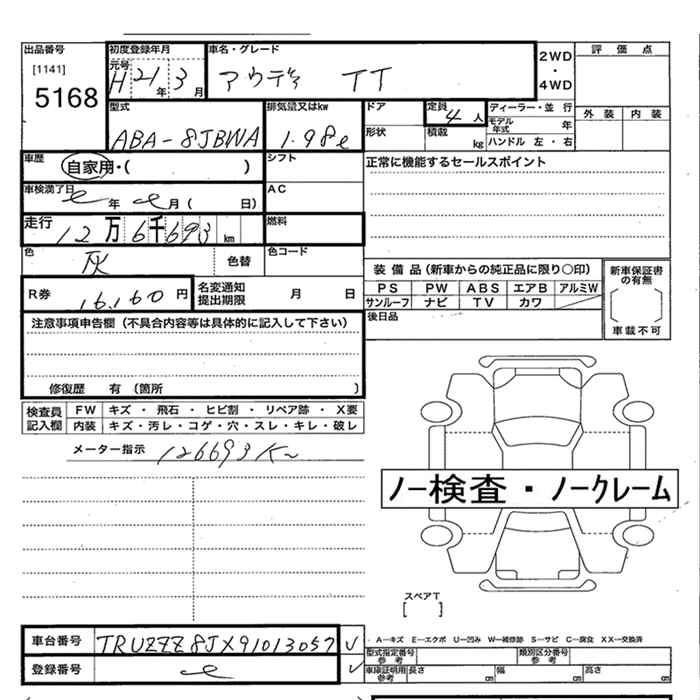 出品番号
[1141]
5168
初度登録年月
元号
H 21 年 3 月
車名・グレード
アウディ TT
2WD
・
4WD
評価点
外装 内装
型式
ABA-8JBWA
排気量又はkw
1.98ℓ
ドア
形状
定員
4 人
積載 kg
ディーラー・並行
モデル年式 年
ハンドル 左・右
車歴
自家用・( )
シフト
AC
正常に機能するセールスポイント
車検満了日
年 月( 日)
走行
12万6千693km
燃料
色
灰
色替
色コード
R券
16,160円
名変通知
提出期限
月 日
装備品(新車からの純正品に限り○印)
PS PW ABS エアB アルミW
サンルーフ ナビ TV カワ
新車保証書
の有無
[ ]
車載不可
後日品
注意事項申告欄(不具合内容等は具体的に記入して下さい)
修復歴 有(箇所 )
検査員
記入欄
FW キズ・飛石・ヒビ割・リペア跡・X要
内装 キズ・汚レ・コゲ・穴・スレ・キレ・破レ
メーター指示
126693K
ノー検査・ノークレーム
スペアT
[ ]
A―キズ E―エクボ U―凹み W―補修跡 S―サビ C―腐食 XX―交換済
車台番号
TRUZZZ8JX91013057
登録番号
型式指定番号
参考
類別区分番号
参考
車庫証明用
参考
長さ cm
幅 cm
高さ cm